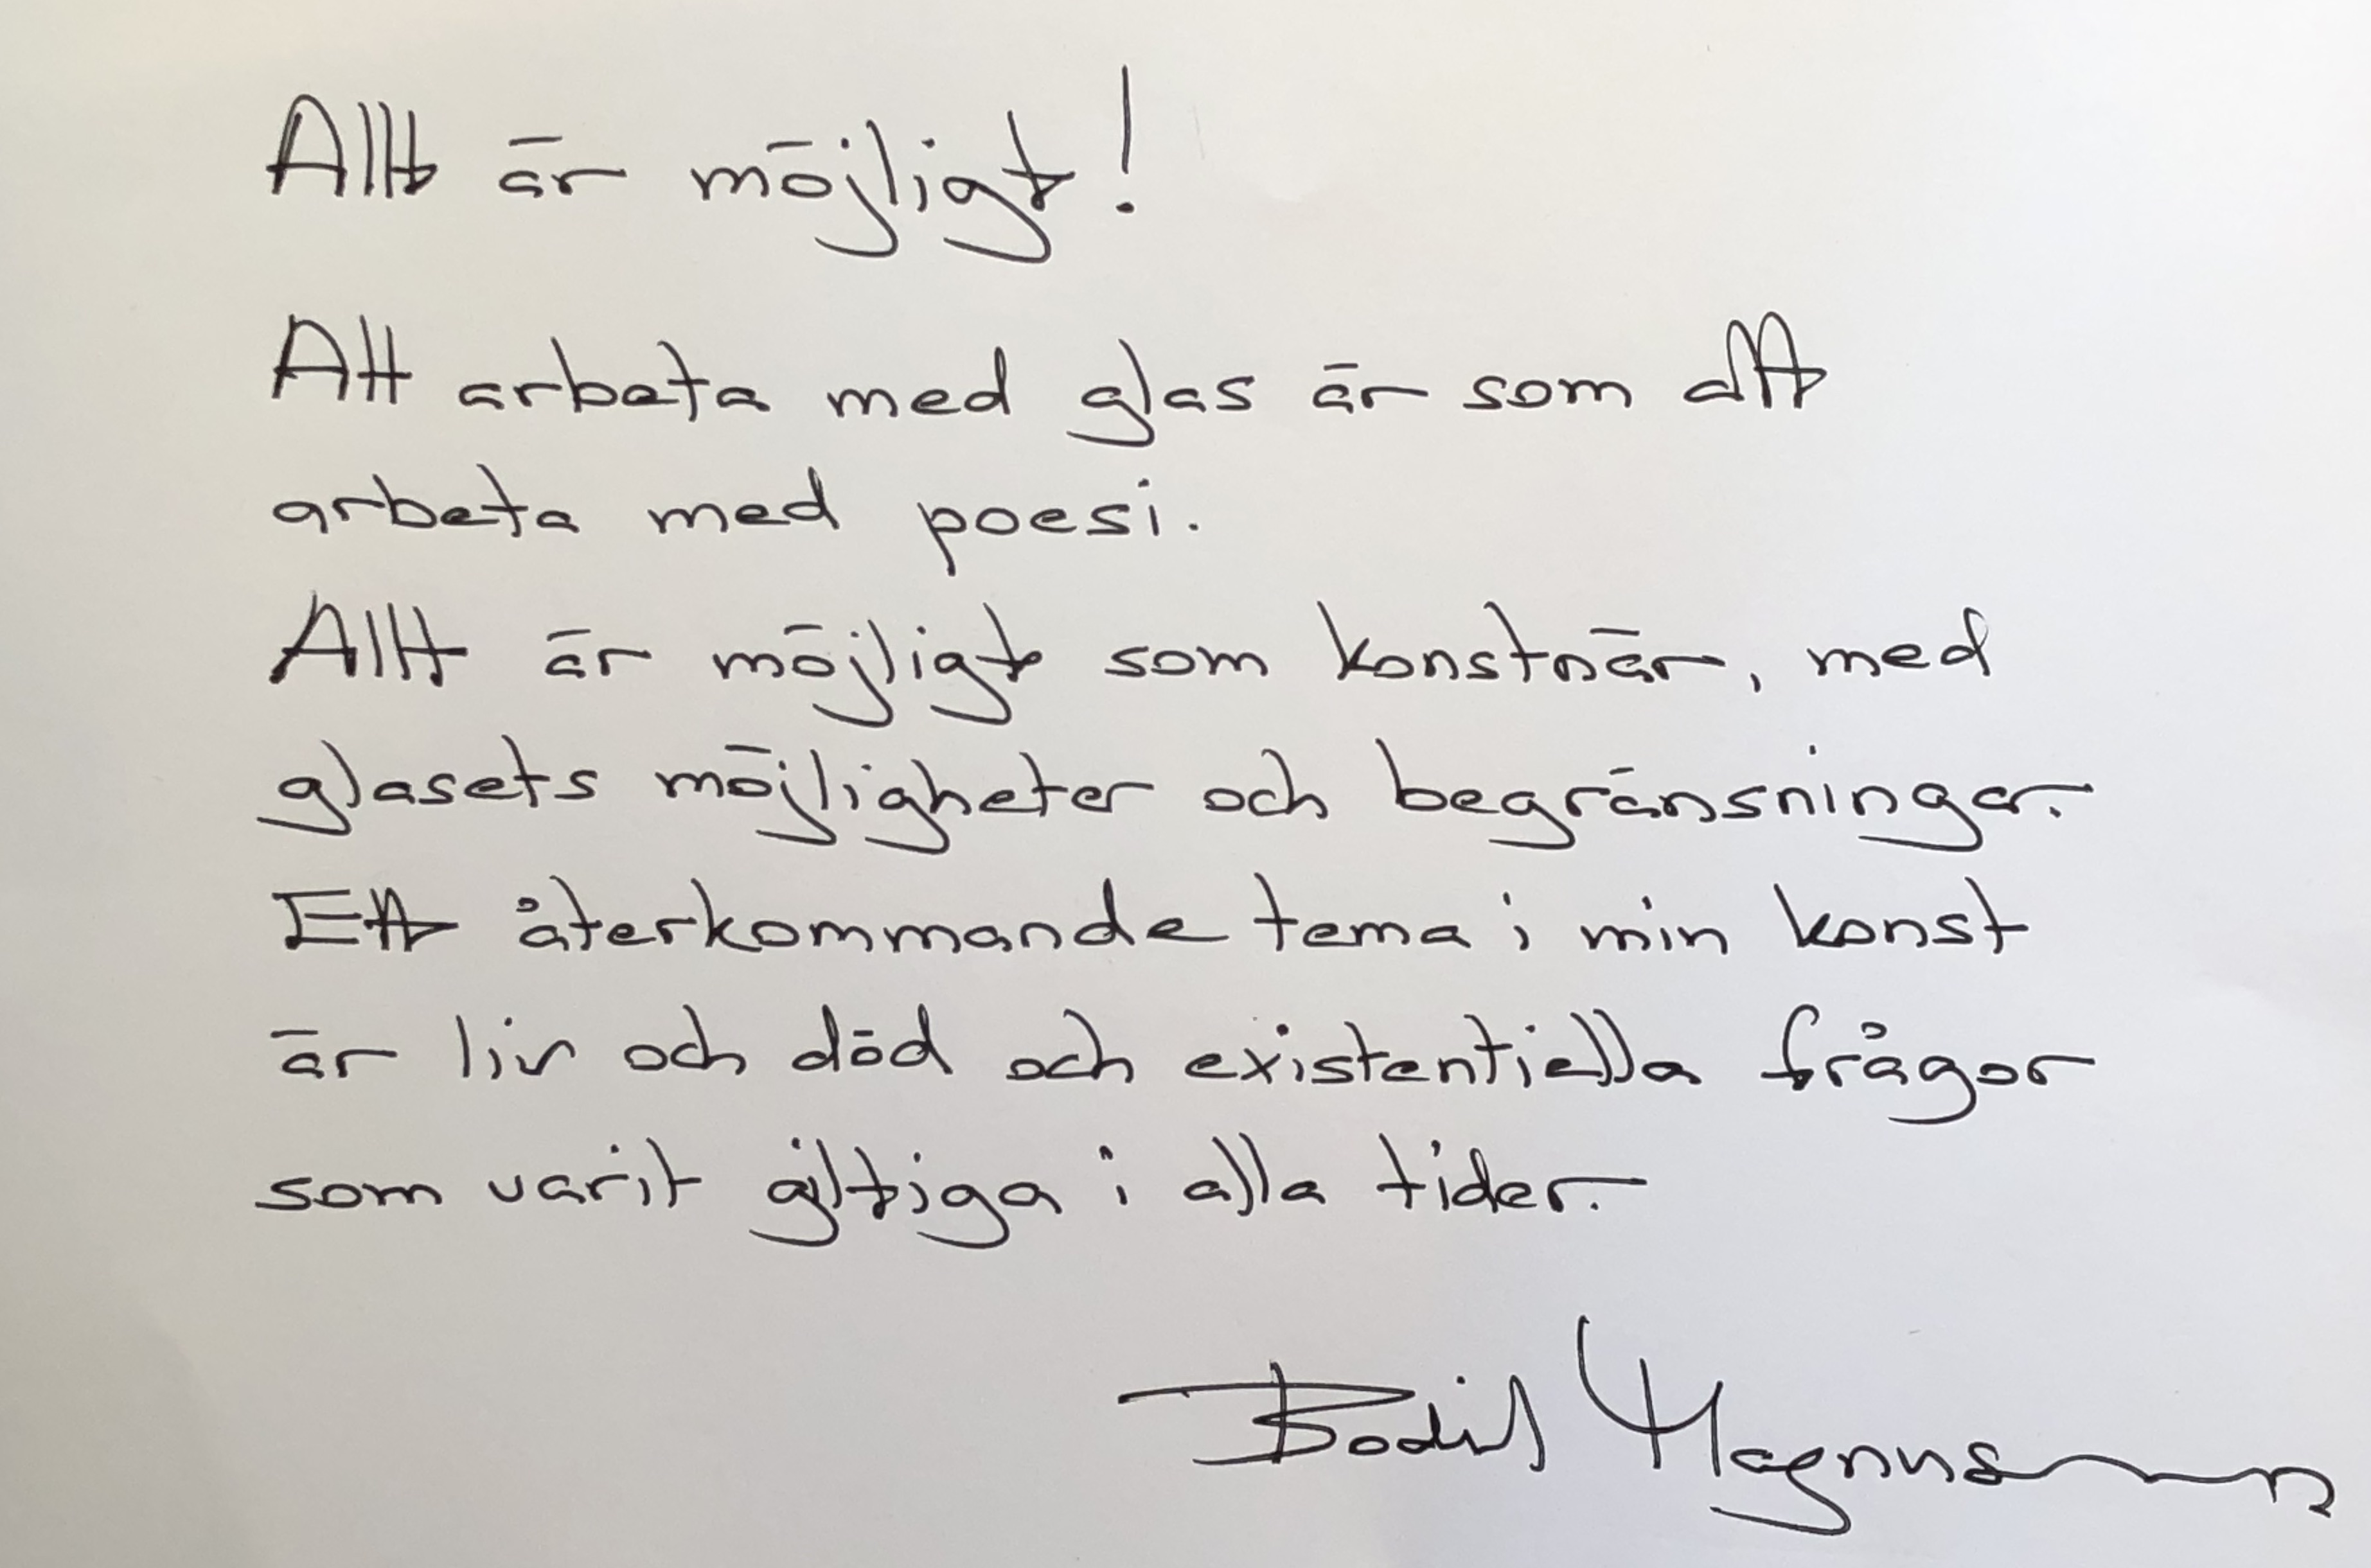 Allt är möjligt!
Att arbeta med glas är som att
arbeta med poesi.
Allt är möjligt som konstnär, med
glasets möjligheter och begränsningar.
Ett återkommande tema i min konst
är liv och död och existentiella frågor
som varit giltiga i alla tider.
Bodil Magnusson